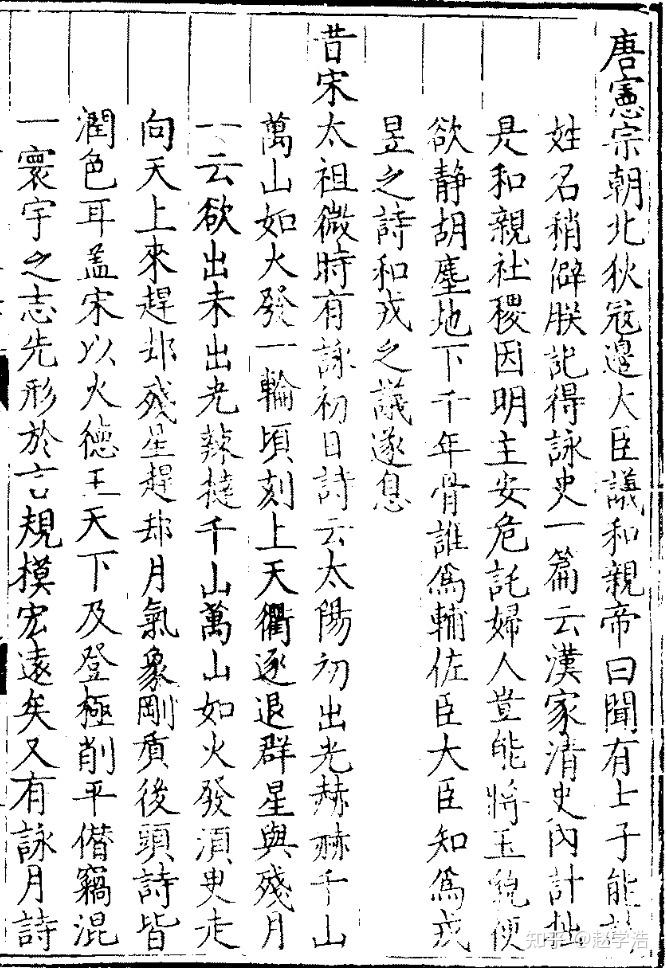 唐憲宗朝北狄冦邊大臣議和親帝曰聞有士子能
姓名稍僻朕記得詠史一篇云漢家清史內計拙
是和親社稷因明主安危託婦人豈能將玉貌便
欲静胡塵地下千年骨誰爲輔佐臣大臣知爲戎
昱之詩和戎之議遂息
昔宋太祖微時有詠初日詩云太陽初出光赫赫千山
萬山如火發一輪頃刻上天衢逐退群星與殘月
一云欲出未出光辣撻千山萬山如火發湏臾走
向天上來趕却殘星趕却月氣象剛質後頭詩皆
潤色耳盖宋以火德王天下及登極削平僣竊混
一寰宇之志先形於言規模宏遠矣又有詠月詩
知乎 @赵学浩